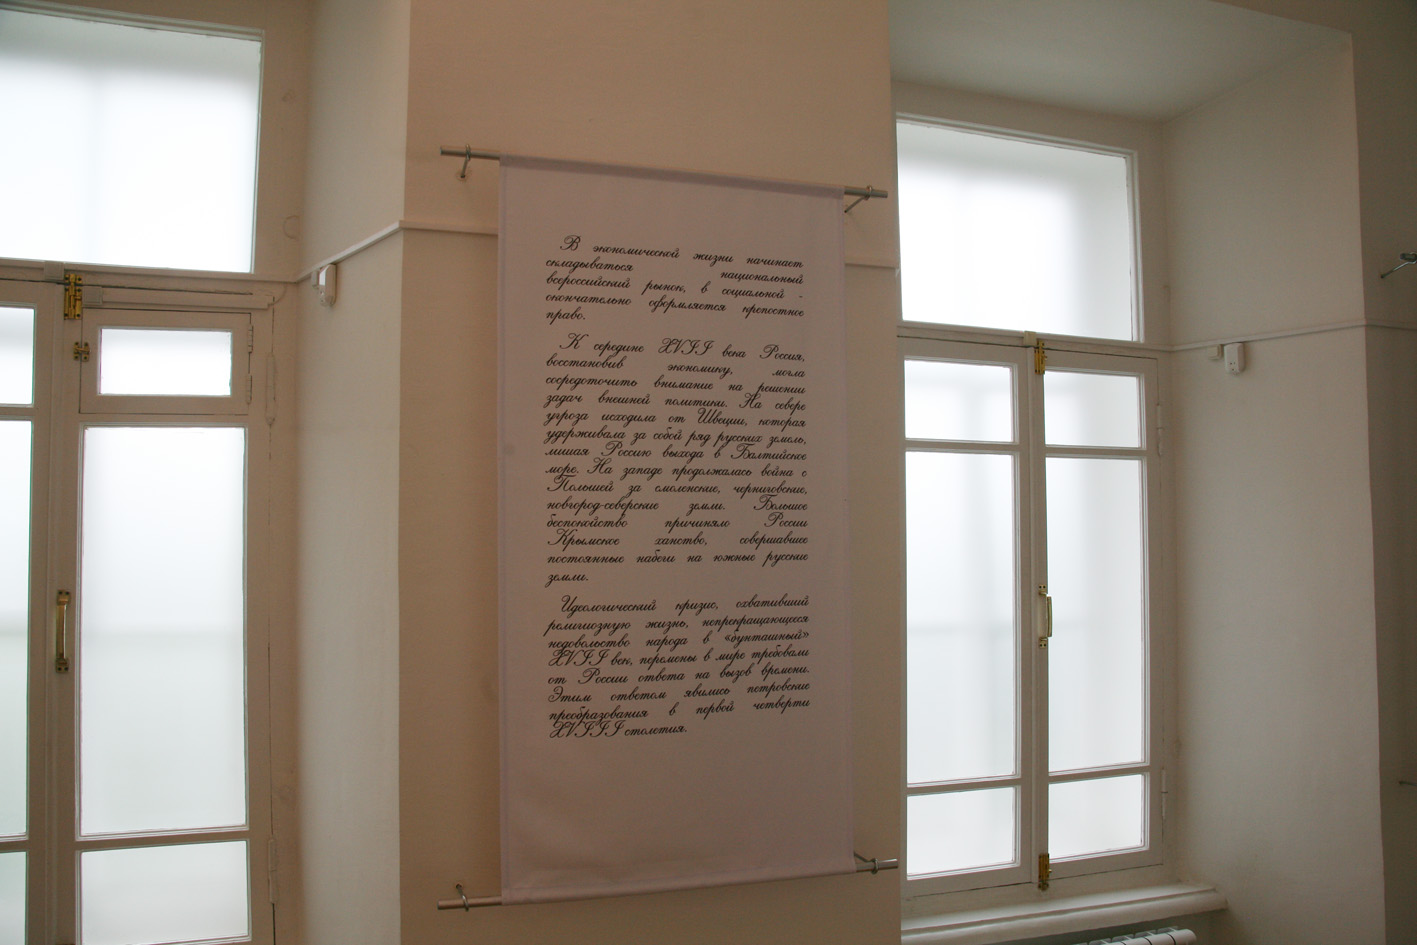 В экономической жизни начинает
складываться национальный
всероссийский рынок, в социальной -
окончательно оформляется крепостное
право.
К середине XVII века Россия,
восстановив экономику, могла
сосредоточить внимание на решении
задач внешней политики. На севере
угроза исходила от Швеции, которая
удерживала за собой ряд русских земель,
лишая Россию выхода в Балтийское
море. На западе продолжалась война с
Польшей за смоленские, черниговские,
новгород-северские земли. Большое
беспокойство причиняло России
Крымское ханство, совершавшее
постоянные набеги на южные русские
земли.
Идеологический кризис, охвативший
религиозную жизнь, непрекращающееся
недовольство народа в «бунташный»
XVII век, перемены в мире требовали
от России ответа на вызов времени.
Этим ответом явились петровские
преобразования в первой четверти
XVIII столетия.